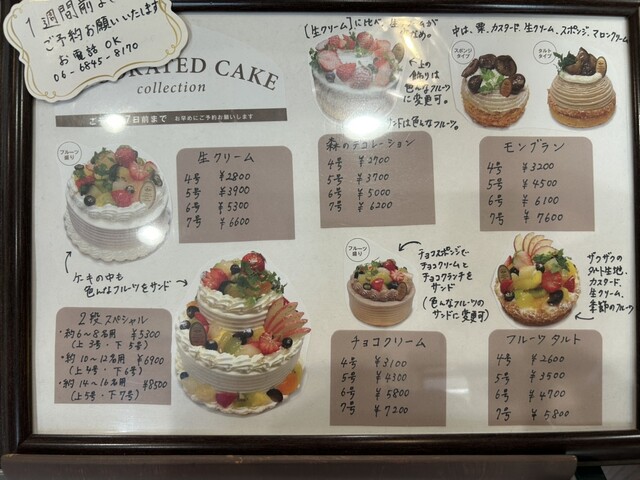 1週間前まで
ご予約お願いいたします
お電話OK
06-6845-8170
RATED CAKE
collection
日前まで お早めにご予約お願いします
フルーツ盛り
生クリーム
4号 ¥2800
5号 ¥3900
6号 ¥5300
7号 ¥6600
ケーキの中も
色んなフルーツをサンド
2段スペシャル
・約6〜8名用 ¥5300
(上3号・下5号)
・約10〜12名用 ¥6900
(上4号・下6号)
・約14〜16名用 ¥8500
(上5号・下7号)
[生クリーム]に比べ、生クリームが
上の
飾りは
色んなフルーツ
に変更可。
サンドは色んなフルーツ。
森のデコレーション
4号 ¥2700
5号 ¥3700
6号 ¥5000
7号 ¥6200
中は、栗、カスタード、生クリーム、スポンジ、マロンクリーム
スポンジタイプ
タルトタイプ
モンブラン
4号 ¥3200
5号 ¥4500
6号 ¥6100
7号 ¥7600
フルーツ盛り
チョコスポンジで
チョコクリームと
チョコクランチを
サンド
(色んなフルーツの
サンドに変更可)
チョコクリーム
4号 ¥3100
5号 ¥4300
6号 ¥5800
7号 ¥7200
ザクザクの
タルト生地、
カスタード、
生クリーム、
季節のフルーツ
フルーツタルト
4号 ¥2600
5号 ¥3500
6号 ¥4700
7号 ¥5800